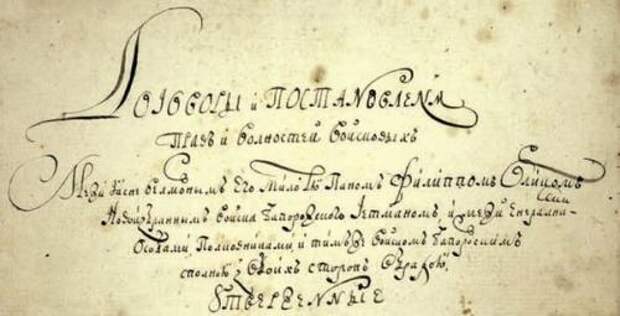 Договоры и ПОСТАНОВЛЕНѦ
Правъ и волностей войсковыхъ
Межи Ясне велможнымъ Его Милостю Паномъ Филиппомъ Орликомъ
Новоизбраннымъ войска Запорозского Гетманомъ, и межи Енералними
Особами, Полковниками, и тимъ же войскомъ Запорозскимъ
сполною з обоихъ сторонъ обрадою
Утверженные